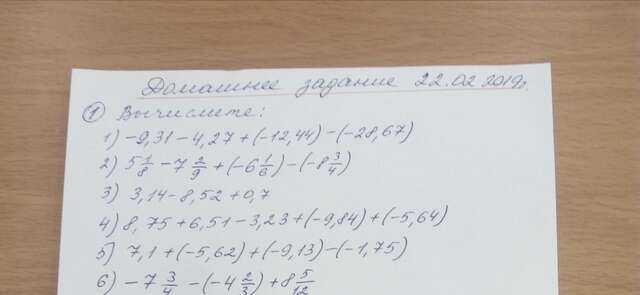 Домашнее задание 22.02.2019г.
① Вычислите:
1) -9,31-4,27+(-12,44)-(-28,67)
2) 5 1/8 - 7 2/9 + (-6 1/6) - (-8 3/4)
3) 3,14-8,52+0,7
4) 8,75+6,51-3,23+(-9,84)+(-5,64)
5) 7,1+(-5,62)+(-9,13)-(-1,75)
6) -7 3/4 - (-4 2/3) + 8 5/12